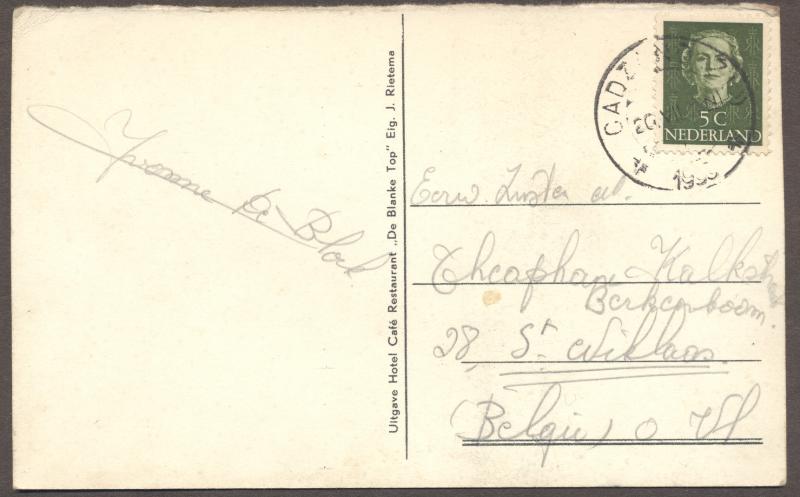 Yvonne De Block
Uitgave Hotel Café Restaurant „De Blanke Top” Eig. J. Rietema
5 C
NEDERLAND
CADZAND
20
1953
Eerw. Zuster
Theaphan Kalkstr
Berkenboom.
28, St. Niklaas.
(Belgie) O Vl